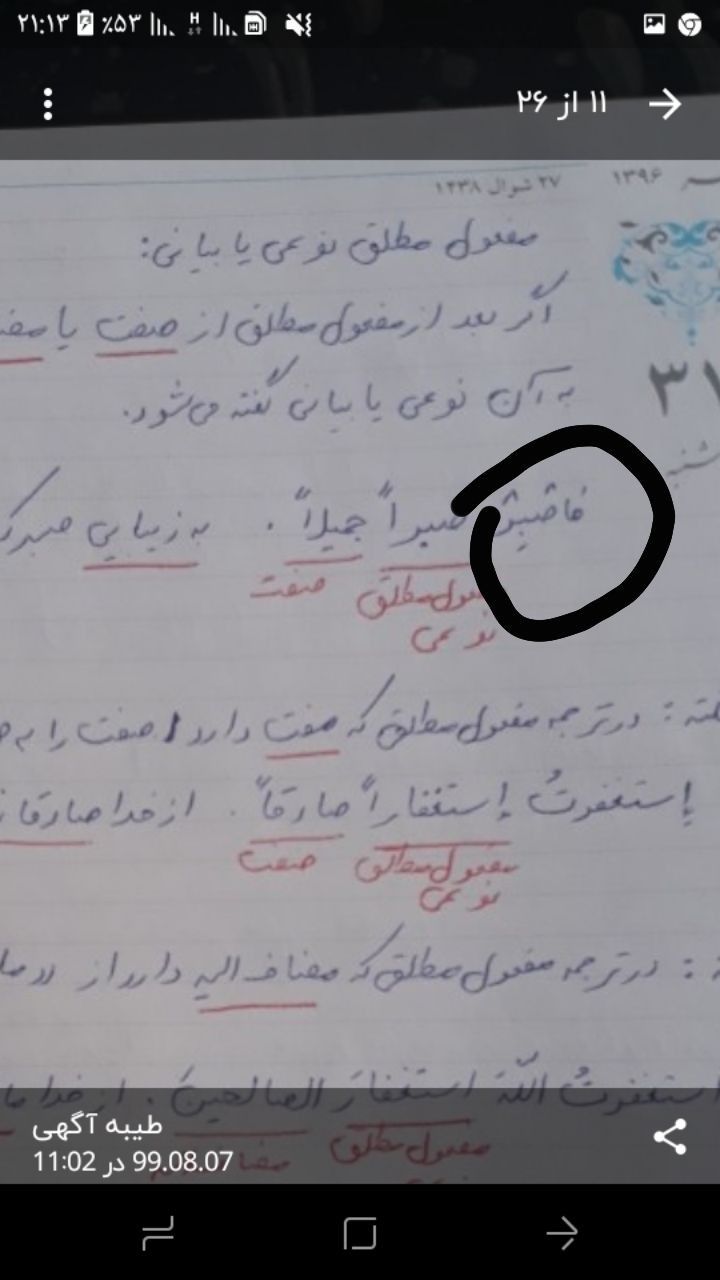 ۲۱:۱۳ ٪۵۳ H
۱۱ از ۲۶
۱۳۹۶ ۲۷ شوال ۱۴۳۸
مفعول مطلق نوعی یا بیانی:
اگر بعد از مفعول مطلق از صفت یا
۳۱
به آن نوعی یا بیانی گفته می‌شود.
شنبه
فاصبِرْ صبراً جمیلاً . به زیبایی صبر
صفت مطلق
نوعی
: در ترجمه مفعول مطلق که صفت دارد، صفت را به
إستغفرتُ إستغفاراً صادقاً . از خدا صادقانه
مفعول مطلق صفت
نوعی
: در ترجمه مفعول مطلق که مضاف الیه دارد از
استغفرتُ اللّهَ استغفارَ الصالحینَ . از خدا
مفعول مطلق
طیبه آگهی
99.08.07 در 11:02